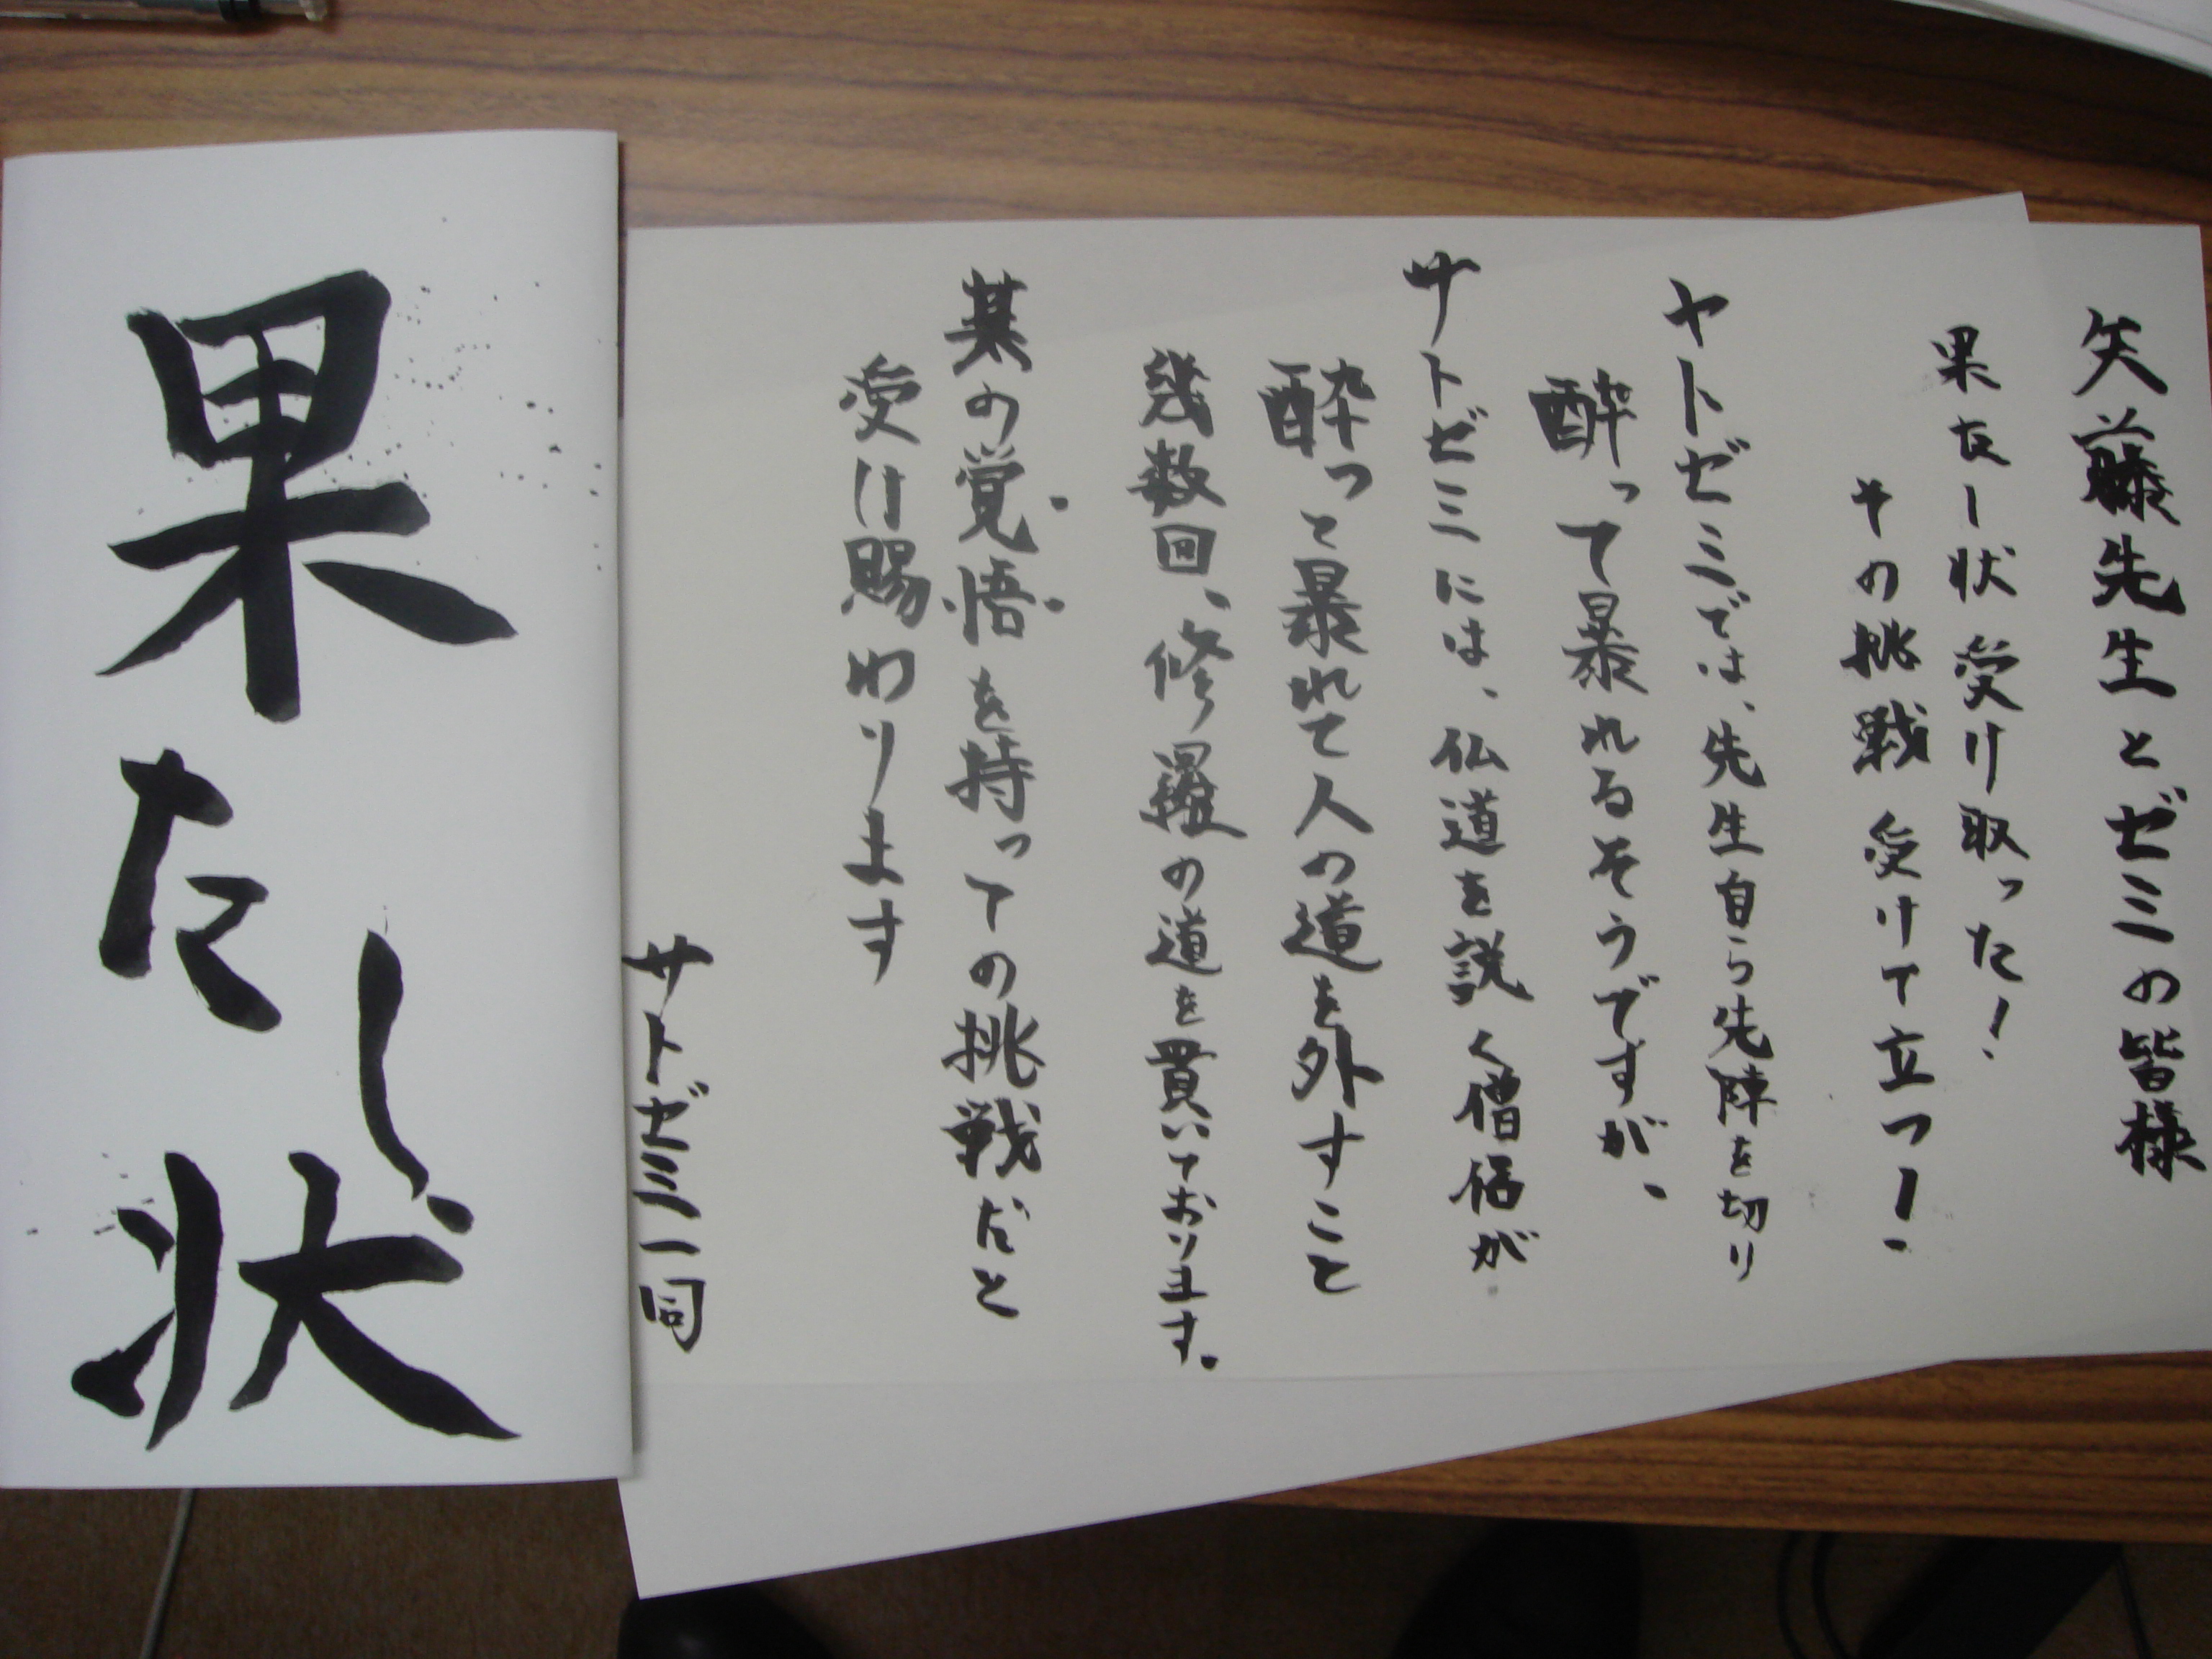 矢藤先生とゼミの皆様
果たし状 受け取った!
その挑戦 受けて立つ!
ヤトゼミでは、先生自ら先陣を切り
酔って暴れるそうですが、
サトゼミには、仏道を説く僧侶が
酔って暴れて人の道を外すこと
幾数回、修羅の道を貫いております。
某の覚悟を持っての挑戦だと
受け賜わります
サトゼミ一同
果たし状